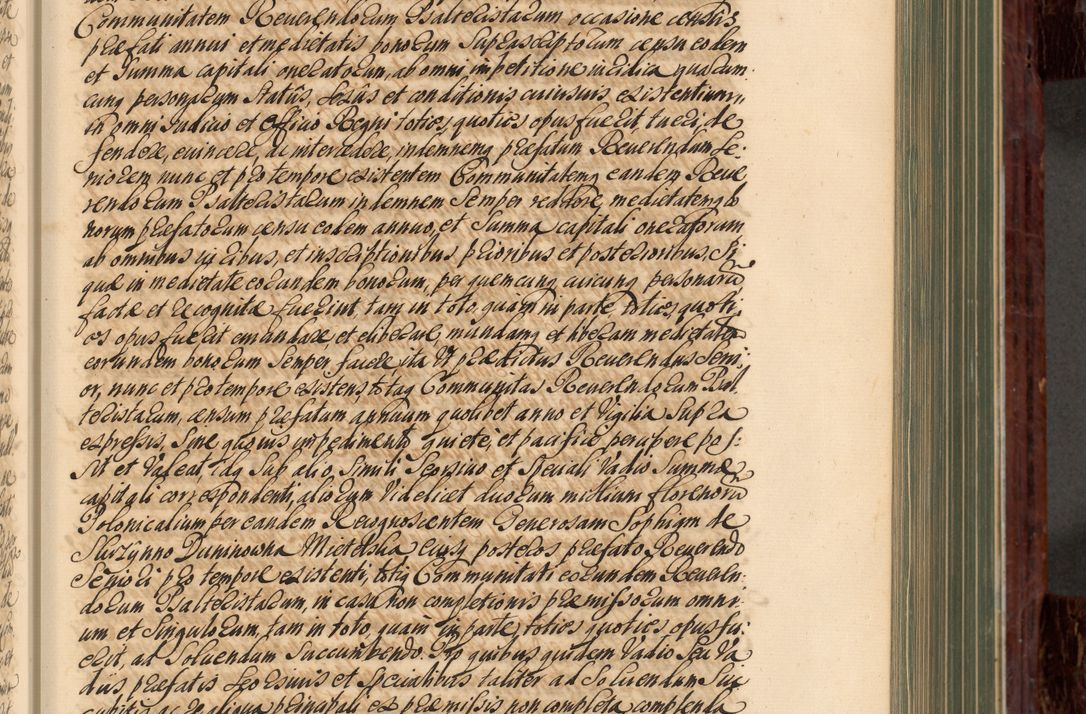 Communitatem Reuerendorum Psalteristarum occasione census
præfati annui et medietatis bonorum suprascriptorum censu eodem
et summa capitali oneratorum, ab omni impetitione iuridica quarum
cunq personarum status, sexus et conditionis cuiusuis existentium,
in omni Iudicio et Officio Regni toties, quoties opus fuerit, tueri, de
fendere, euincere, ac intercedere, indemnemq præfatum Reuerendum Se:
niorem nunc et pro tempore existentem Communitatemq eandem Reue
rendorum Psalteristarum indemnem semper reddere, medietatemq bo
norum præfatorum censu eodem annuo, et summa capitali oneratorum
ab omnibus iuribus, et inscriptionibus prioribus et posterioribus, si
quæ in medietate eorundem bonorum, per quemcunq cuicunq personarum
factæ et recognitæ fuerint tam in toto, quam in parte, toties, quoti
es opus fuerit emundare et eliberare, mundamq et liberam medietatem
eorundem bonorum semper facere ita vt prædictus Reuerendus Seni
or, nunc et pro tempore existens, totaq Communitas Reuerendorum Psal
teristarum, censum præfatum annuum quolibet anno et Vigilia supra
expressis, sine quouis impedimento, quietè, et pacificè percipere pos
sit et valeat, Idq sub alio, simili seorsiuo et speciali Vadio summæ
capitali correspondenti, aliorum videlicet duorum millium florenorum
Polonicalium per eandem Recognoscentem Generosam Sophiam de
Skrzynno Duninowna Mietelska eiusq posteros præfato Reuerendo
Seniori pro tempore existenti, totiq Communitati eorundem Reueren:
dorum Psalteristarum, in casu non completionis præmissorum omni:
um et singulorum, tam in toto, quam in parte, toties quoties opus fu:
erit, ad soluendum succumbendo. Pro quibus quidem Vadio seu Va
diis, præfatis seorsiuis et specialibus taliter ad soluendum suc
cubitis ac re aliqua principali ex præmissis non completa complenda